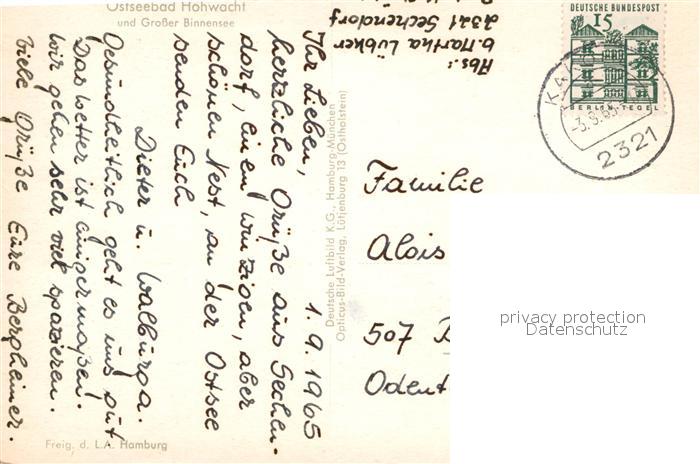 Ostseebad Hohwacht
und Großer Binnensee
1.9.1965
Ihr Lieben,
herzliche Grüße aus Sechen-
dorf, einen winzigen, aber
schönen Nest, an der Ostsee
senden Euch
Dieter u. Walburga.
Gesundheitlich geht es uns gut
Das Wetter ist einigermaßen!
wir gehen sehr viel spazieren.
Viele Grüße Eure Bergheimer.
Freig. d. L.A. Hamburg
Deutsche Luftbild K.G., Hamburg-München
Opticus-Bild-Verlag, Lütjenburg 13 (Ostholstein)
Abs.:
b. Martha Lübker
2321 Sechendorf
DEUTSCHE BUNDESPOST
15
BERLIN-TEGEL
-3.9.65
2321
Familie
Alois
507
Odent
privacy protection
Datenschutz